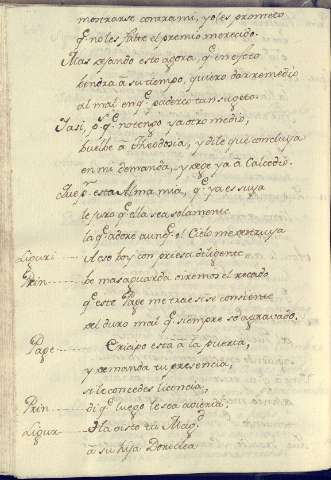 mostrarse contra mi, yo les prometo
q.e no les falte el premio merecido.
Mas dejando esto agora, q.e en efeto
bendra â su tiempo, quiero dar remedio
al mal en q.e padezco tan sugeto.
I asi, p.s q.e no tengo ya otro medio,
buelbe â Theodosia, y dile que concluya
en mi demanda, y pege ya â
Que p.r esta Alma mia, q.e ya es suya
le juro q.e ella sea solamente
la q.e adore aunq.e el Cielo me destruya
Liguri - A eso boy con priesa diligente.
Prin - be mas aguarda oiremos el recado
q.e este Page me trae si se consiente
del duro mal q.e siempre so agravado.
Page - Crispo está â la puerta,
y demanda tu presencia,
si le concedes licencia,
Prin - di q.e luego le sea abierta,
Ligur - Ha oisto tu Mag.d
â su hija Doriclea